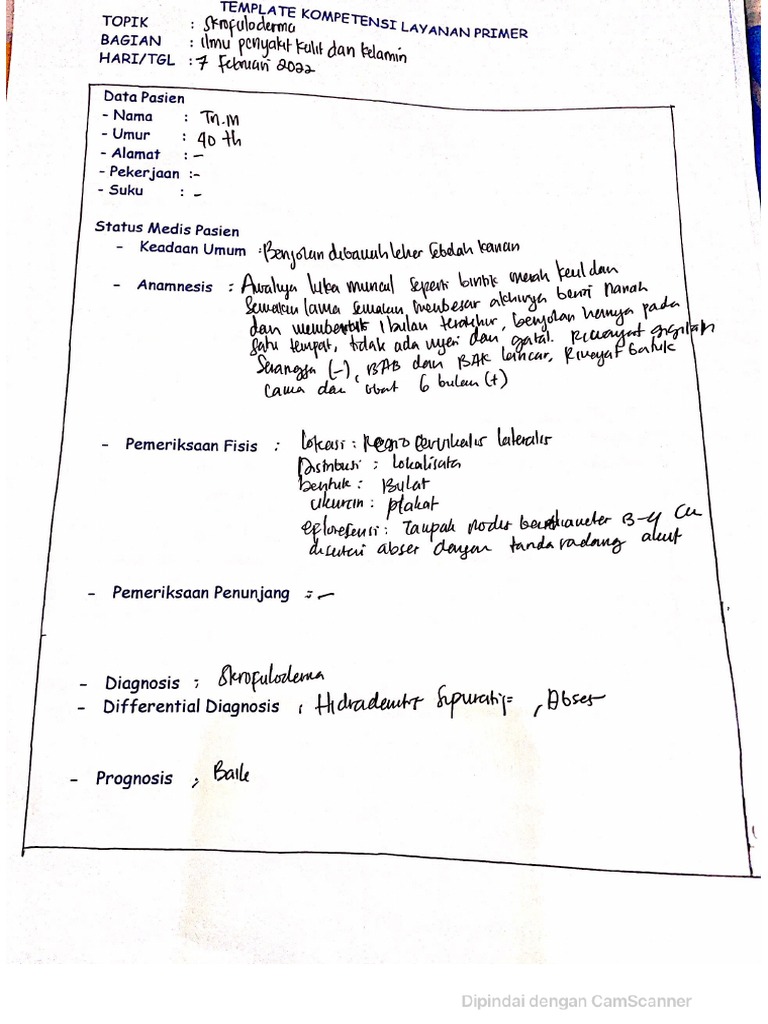 TEMPLATE KOMPETENSI LAYANAN PRIMER
TOPIK : Skrofuloderma
BAGIAN : ilmu penyakit kulit dan kelamin
HARI/TGL : 7 Februari 2022
Data Pasien
- Nama : Tn.M
- Umur : 40 th
- Alamat : -
- Pekerjaan : -
- Suku : -
Status Medis Pasien
- Keadaan Umum : Benjolan dibawah leher sebelah kanan
- Anamnesis : Awalnya luka muncul seperti bintik merah kecil dan
semakin lama semakin membesar akhirnya berisi nanah
dan membentuk 1 bulan terakhir, benjolan hanya pada
satu tempat, tidak ada nyeri dan gatal. Riwayat gigitan
Serangga (-), BAB dan BAK lancar, Riwayat batuk
lama dan obat 6 bulan (+)
- Pemeriksaan Fisis : Lokasi : Regio cervikalis lateralis
Distribusi : Lokalisata
bentuk : Bulat
ukuran : plakat
efloresensi : Tampak nodus berdiameter 3-4 cm
disertai abses dengan tanda radang akut
- Pemeriksaan Penunjang : -
- Diagnosis : Skrofuloderma
- Differential Diagnosis : Hidradenitis Supuratif , Abses
- Prognosis : Baik
Dipindai dengan CamScanner